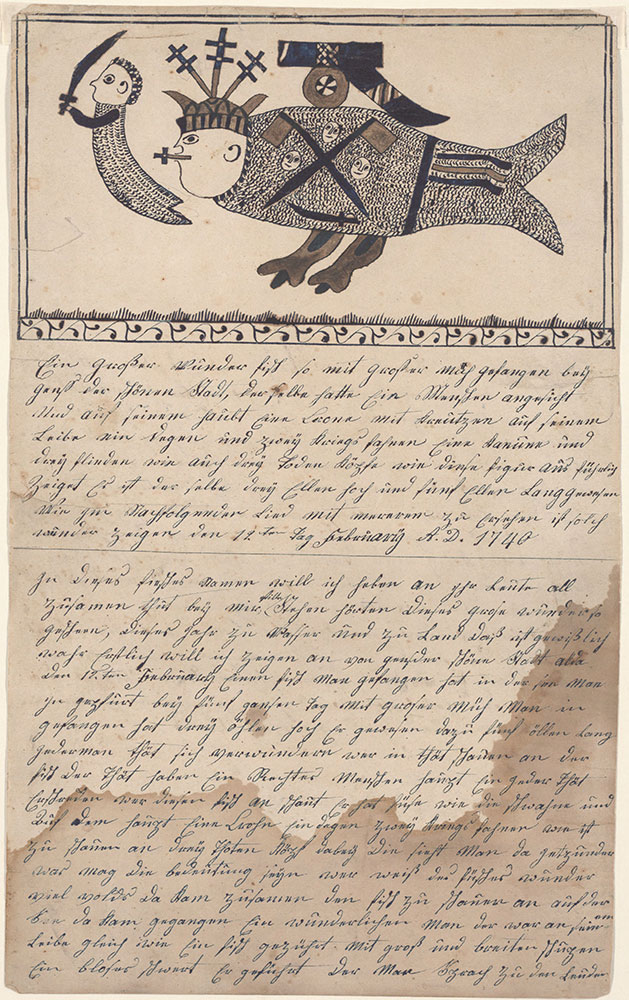 Ein Großer Wunder fisch so mit Großer müh gefangen bey
Genff der schönen Stadt, der selbe hatte Ein Menschen angesicht
Und auf seinem haubt Eine Crone mit Creützen auf seinem
Leibe ein degen und zweÿ Kriegs fahnen Eine Kanune und
dreÿ flinden wie auch dreÿ Toden Köpfe wie diese figur aus führlich
Zeiget Er ist der selbe dreÿ Ellen hoch und fünf Ellen Lang gewesen
Wie im Nachfolgender Lied mit mererem zu Ersehen ist solch
wunder Zeigen den 12.ten Tag Februariÿ A. D. 1740
In Dieses fisches Namen will ich heben an ihr Leute all
Zusamen thut bey mir stille Stehen hörten Dieses grose wunder so
geschehen, dieses Jahr zu Wasser und zu Land daß ist gewißlich
wahr Erstlich will ich zeigen an von der schöne Stadt alda
den 12.ten Februariÿ Einen fisch man gefangen hat in der see man
in gespürt beÿ fünf gantzen tag mit groser Müh man in
gefangen hat dreÿ öhlen hoch Er gewesen dazu fünf öllen lang
Jederman thät sich verwundern wer in thät schauen an der
fisch der thät haben Ein Rechtes Menschen haupt Ein jeder thät
Erschrecken wer diesen fisch an schaut Er hat füse wie die schwahne und
Auf dem haupt Eine Crohn ein degen zweÿ Kriegs fahnen wie ist
zu schauen an dreÿ Toten Köpf dabeÿ die sieht man da jetzunder
was mag die bedeutung seÿn wer weiß des fisches wunder
viel volcks da kam zusamen den fisch zu schauen an auf der
See da kam gegangen Ein wunderlichen man der war an seinem
Leibe gleich wie Ein fisch mit groß und breiten schupen
Ein bloses schwert Er geführt der Man Sprach zu den Leuten